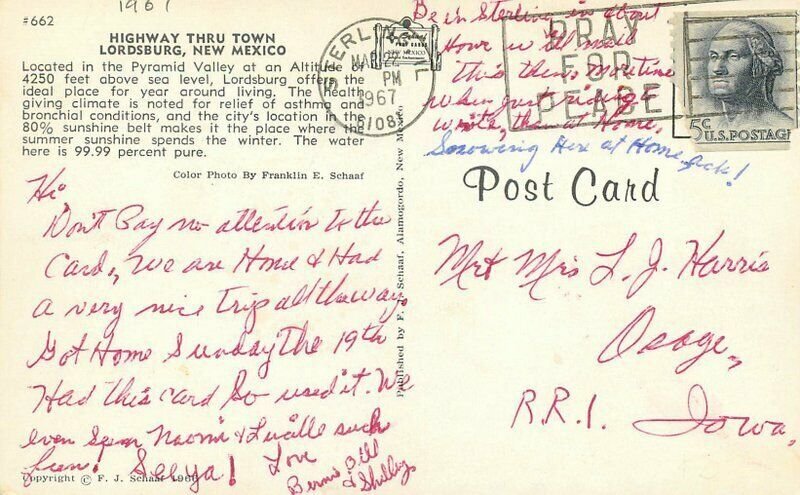 1967
#662
HIGHWAY THRU TOWN
LORDSBURG, NEW MEXICO
Located in the Pyramid Valley at an Altitude
4250 feet above sea level, Lordsburg offers the
ideal place for year around living. The health
giving climate is noted for relief of asthma and
bronchial conditions, and the city's location in the
80% sunshine belt makes it the place where the
summer sunshine spends the winter. The water
here is 99.99 percent pure.
Color Photo By Franklin E. Schaaf
Hi,
Don't Pay no attention to the
Card, We are Home & Had
a very nice Trip all the way.
Got Home Sunday the 19th
Had this card So used it. We
even seen Naomi & Lucille such
fun! See ya! Love
Bernie Bill
& Shelley
Copyright © F. J. Schaaf 1966
Published by F. J. Schaaf, Alamogordo, New Mexico
POST CARDS
NEW MEXICO
STERLING
MAR 22
PM
1967
61081
PRAY
FOR
PEACE
5c U.S. POSTAGE
Be in Sterling in about
Hour will mail
this then, More time
when just riding
write, than at Home.
Snowing Here at Home, ick!
Post Card
Mr & Mrs L. J. Harris
Osage,
R.R.1. Iowa,